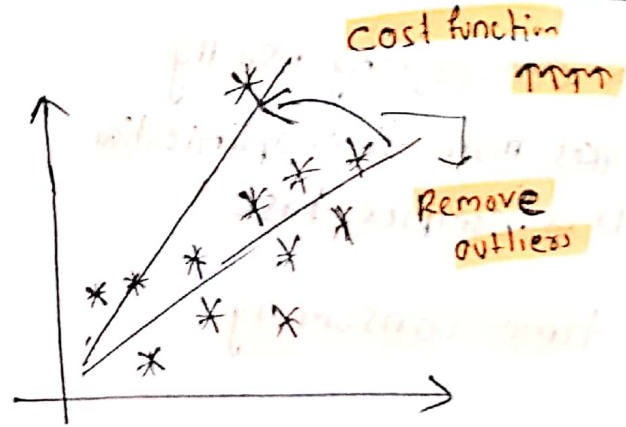 Cost function
↑↑↑↑
Remove
outliers